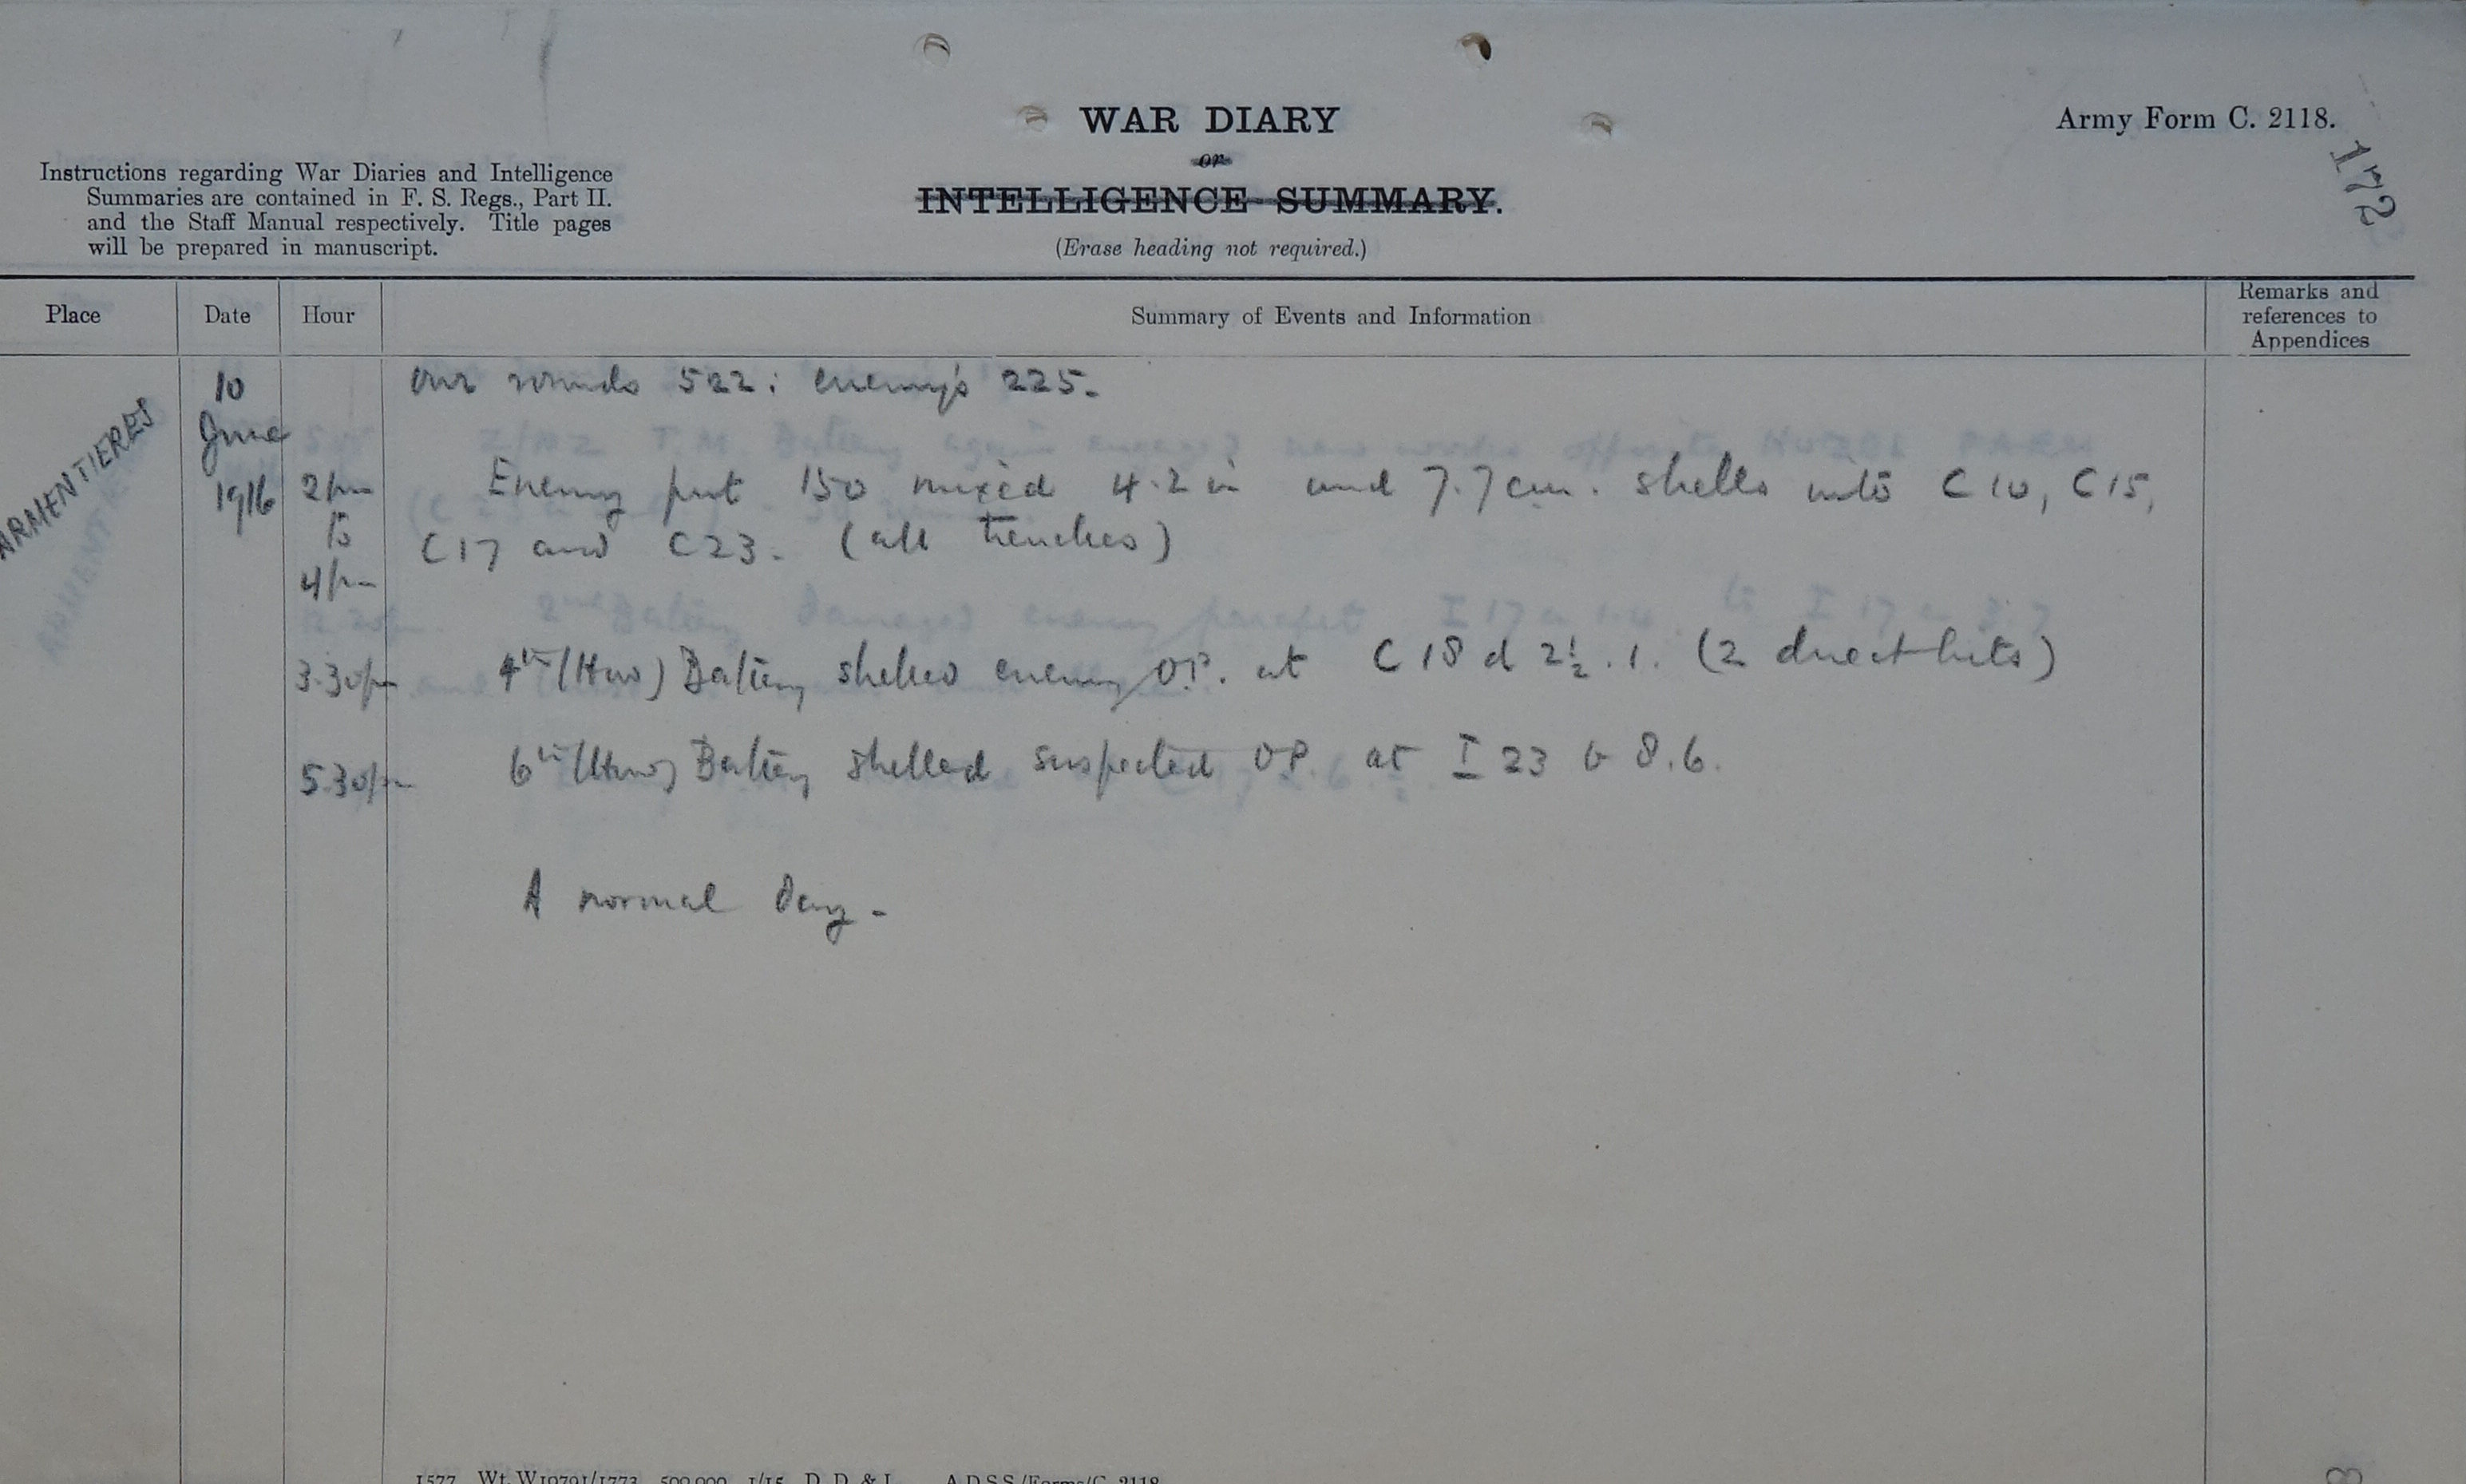 WAR DIARY
or
INTELLIGENCE SUMMARY.
(Erase heading not required.)
Army Form C. 2118.
172
Instructions regarding War Diaries and Intelligence
Summaries are contained in F. S. Regs., Part II.
and the Staff Manual respectively. Title pages
will be prepared in manuscript.
Place Date Hour Summary of Events and Information Remarks and references to Appendices
ARMENTIERES
10 Our rounds 522: enemy's 225.
June
1916 2pm Enemy put 150 mixed 4.2 in and 7.7cm. shells into C10, C15,
to C17 and C23. (all trenches)
4pm
3.30pm 4th (How) Battery shelled enemy O.P. at C 18 d 2½.1. (2 direct hits)
5.30pm 6th (How) Battery shelled suspected OP at I 23 b 8.6.
A normal day.
1577 Wt. W10791/1773 500,000 1/15 D. D. & L. A.D.S.S./Forms/C. 2118